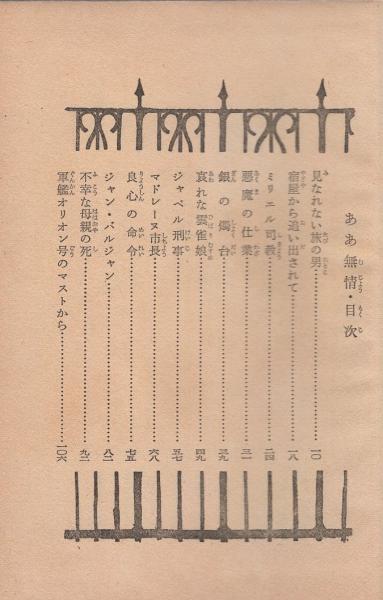 ああ無情・目次
見なれない旅の男……一〇
宿屋から追い出されて……一八
ミリエル司教……二四
悪魔の仕業……三一
銀の燭台……三九
哀れな雲雀娘……四九
ジャベル刑事……五七
マドレーヌ市長……六八
良心の命令……七五
ジャン・バルジャン……八二
不幸な母親の死……九二
軍艦オリオン号のマストから……一〇六